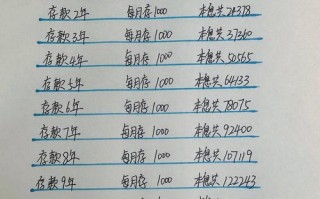 存款2年 每月存1000 本息共24378
存款3年 每月存1000 本息共37360
存款4年 每月存1000 本息共50565
存款5年 每月存1000 本息共64133
存款6年 每月存1000 本息共78075
存款7年 每月存1000 本息共92400
存款8年 每月存1000 本息共107119
存款9年 每月存1000 本息共122243